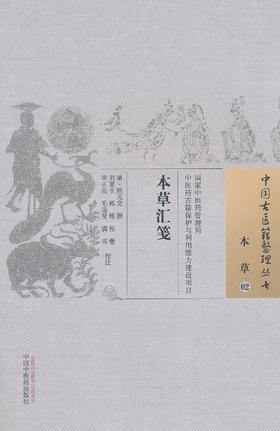 中国古医籍整理丛书
本草
02
国家中医药管理局
中医药古籍保护与利用能力建设项目
本草汇笺
清·顾元交 撰
刘更生 郭栋 张蕾
李正安 毛逸斐 满雪 校注
中国中医药出版社